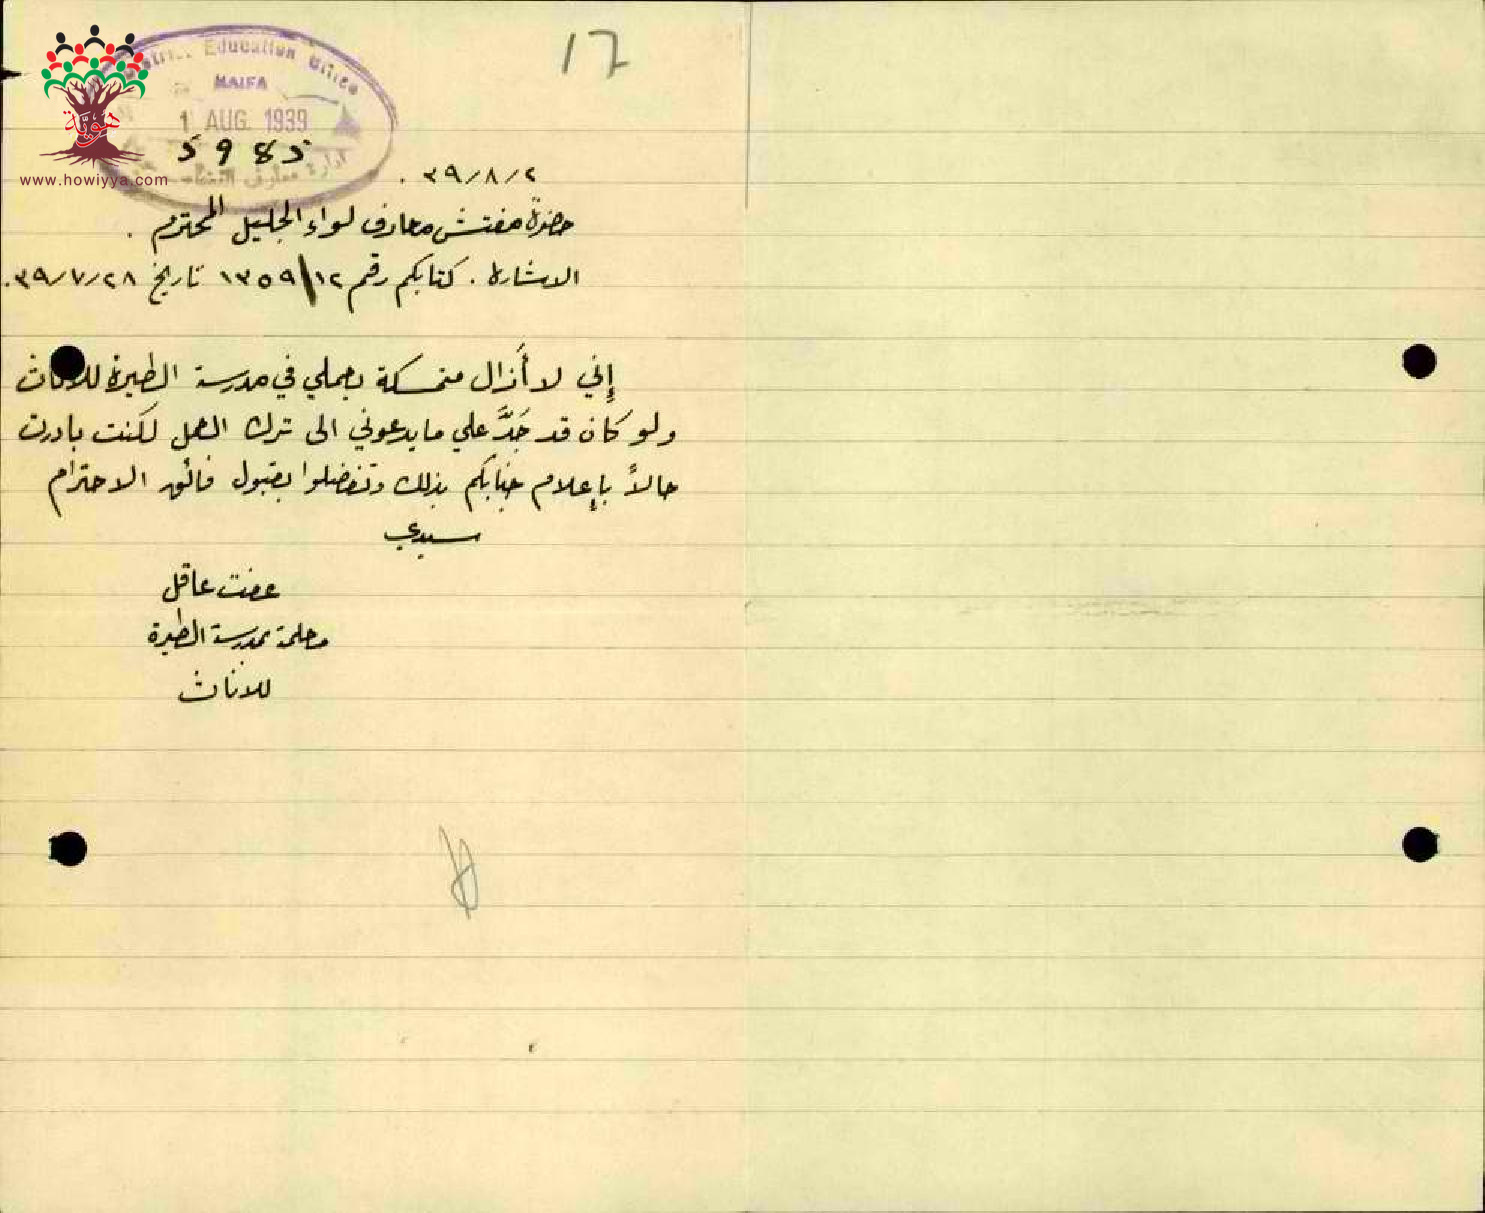 17
District Education Office
HAIFA
1 AUG. 1939
5985
هويّة
www.howiyya.com
٣٩/٨/٢ .
حضرة مفتش معارف لواء الجليل المحترم .
الاشارة . كتابكم رقم ١٣٥٩/١٢ تاريخ ٣٩/٧/٢٨.
إني لا أزال متمسكة بعملي في مدرسة الطيرة للاناث
ولو كان قد جَدَّ علي ما يدعوني الى ترك العمل لكنت بادرت
حالاً بإعلام جنابكم بذلك وتفضلوا بقبول فائق الاحترام
سيدي
عفت عاقل
معلمة بمدرسة الطيرة
للاناث